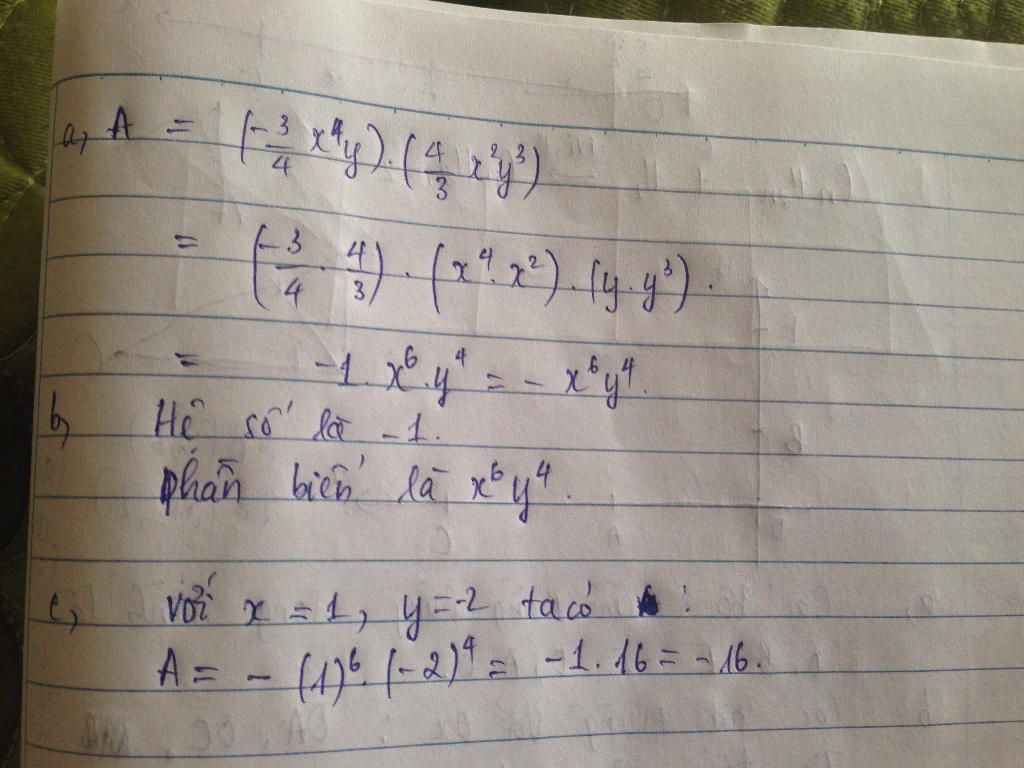 a, A = (-3/4 x⁴y).(4/3 x²y³)
= (-3/4 . 4/3) . (x⁴. x²) . (y. y³) .
= -1. x⁶. y⁴ = - x⁶y⁴.
b, Hệ số là -1.
phần biến là x⁶y⁴.
c, với x = 1, y=-2 ta có :
A = - (1)⁶. (-2)⁴ = -1. 16 = -16.